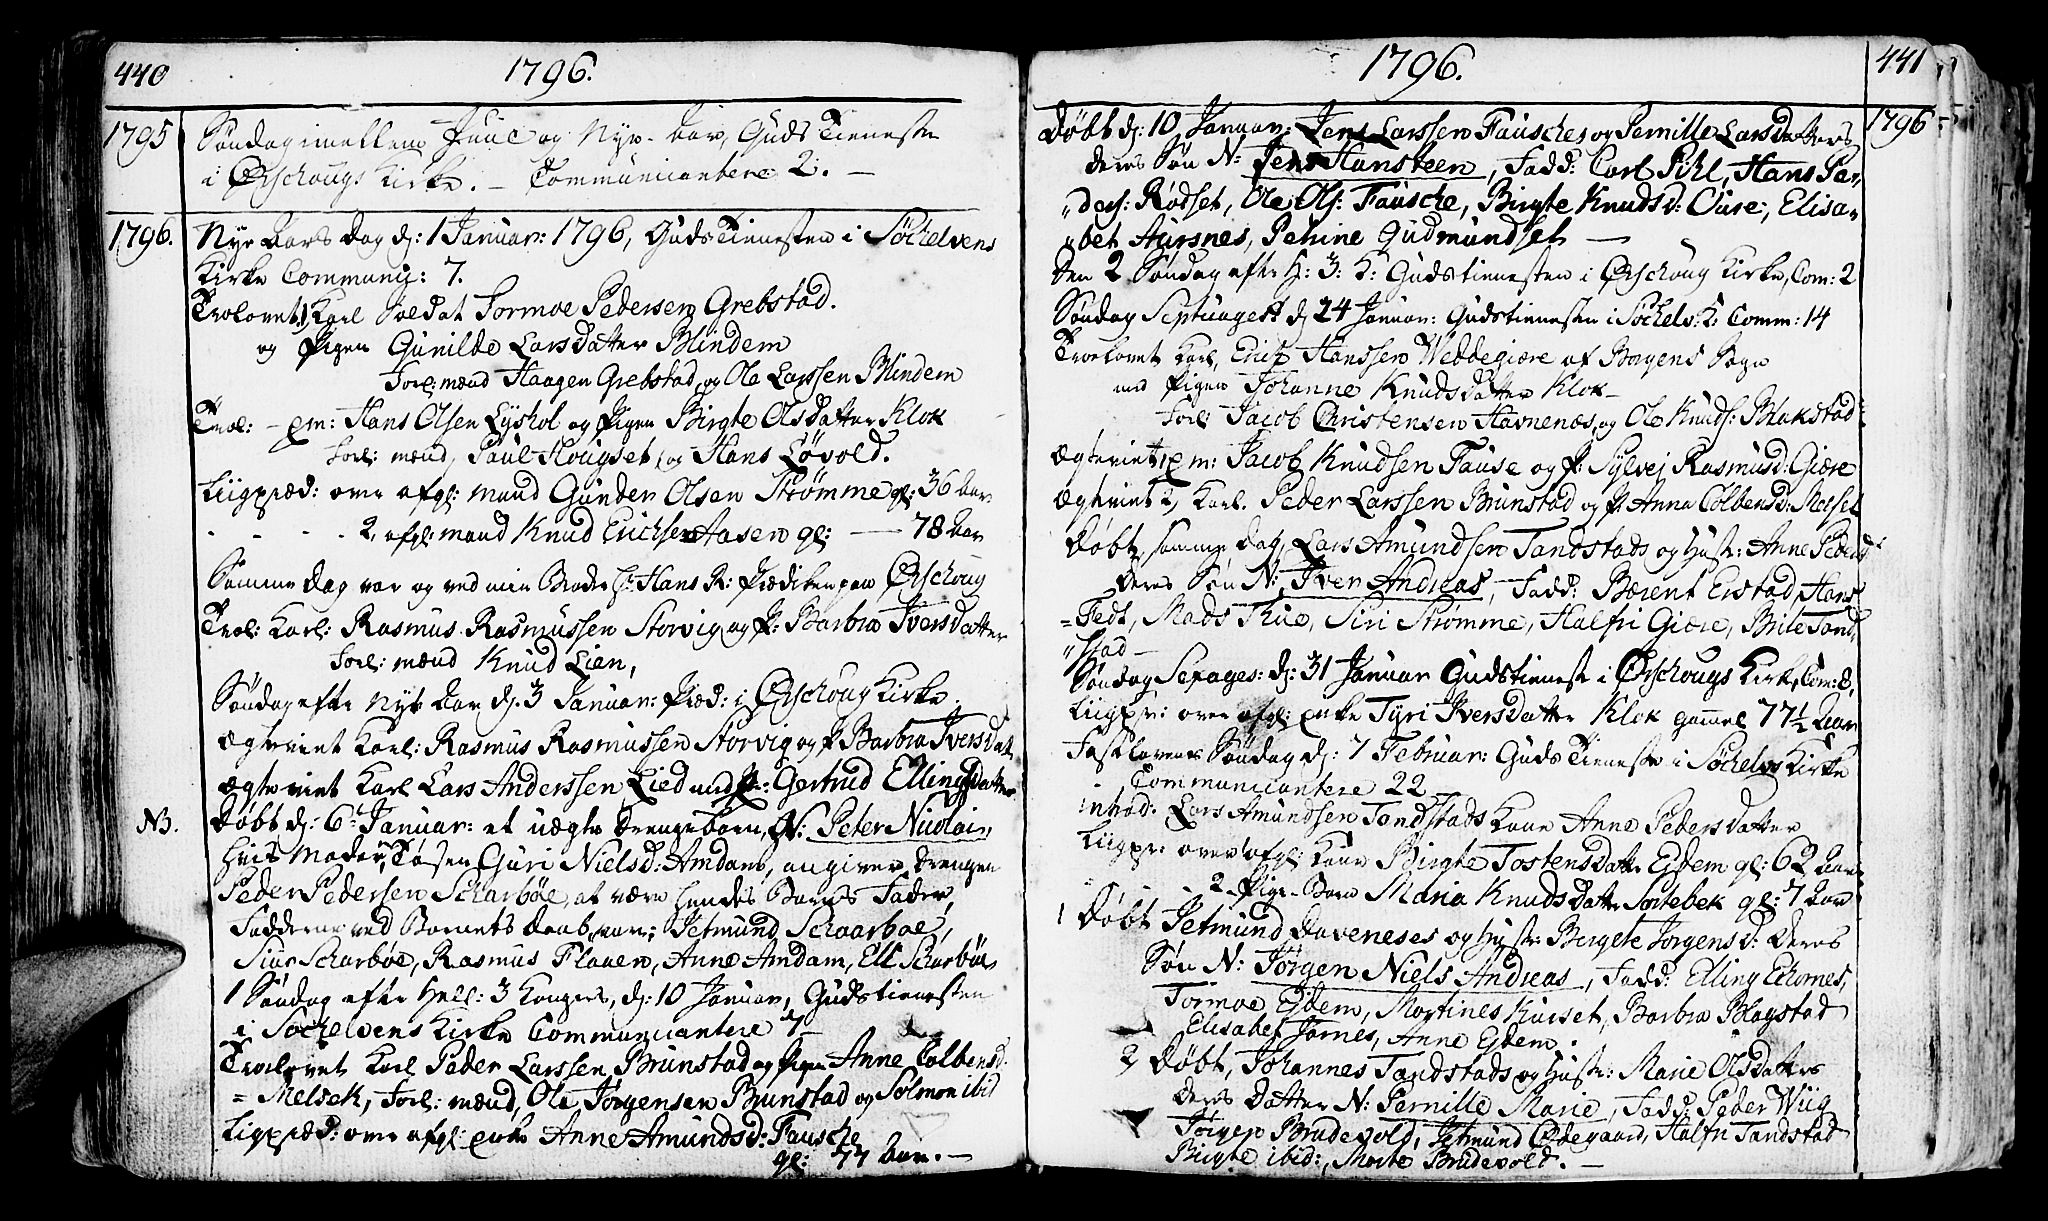 440
1796.
1795
Søndag imellem Juul og Nyt-Aar, Guds Tieneste
i Ørschougs Kirke. – Communicantere 2. –
1796.
Nyt Aars Dag d: 1 Januar: 1796, Guds Tienesten i Søchelvens
Kirke Communiz: 7.
Trolovet 1, Karl Soldat Tormoe Pedersen Grebstad.
og Pigen Gunilde Larsdatter Blindem
Forl: mænd Haagen Grebstad, og Ole Larssen Blindem
Trol: – em: Hans Olsen Lyshol og Pigen Birgte Olsdatter Klok
Forl: mænd, Paul Hougset, og Hans Løvold.
Liigpræd: over afgl: mand Gunder Olsen Strømme gl: 36 Aar
2, afgl: mand Knud Erichsen Aasen gl: — 78 Aar
Samme Dag var og ved min Broder Hr: Hans R: Prædiken paa Ørschoug
Trol: Karl: Rasmus Rasmussen Storvig og P: Barbra Iversdatter
Forl: mænd Knud Lien,
Søndag efter Nyt Aar d: 3 Januar: Præd: i Ørschoug Kirke.
Ægteviet Karl: Rasmus Rasmussen Storvig og P: Barbra Iversdatt
Ægteviet Karl Lars Anderssen Lied med P: Gertrud Ellingsdatter
NB.
Døbt d: 6te Januar: et uægte Drengebarn, N: Peter Nicolai,
hvis Moder, Tøsen Guri Nielsd: Amdam, angiver Drengen
Peder Pedersen Scharbøe, at være hendes Barns Fader,
Fadderne ved Barnets Daab, var: Jetmund Schaarbøe,
Siur Scharbøe, Rasmus Flaaen, Anne Amdam, Ell Scharbøe
1 Søndag efter Hell: 3 Kongers, d: 10 Januar, Guds Tienesten
i Søchelvens Kirke Communicantere 7
Trolovet Karl Peder Larssen Brunstad og Pigen Anne Colbensd:
= Melsek, Forl: mænd, Ole Jørgensen Brunstad og Solmon ibid
Ligpræd: over afgl: enke Anne Amundsd: Fausche
gl: 77 Aar. –
1796.
441
1796
Døbt d: 10 Januar: Jens Larssen Fausches og Pernille Larsdatters
deres Søn N: Jens Hansteen, Fadd: Carl Pihl, Hans Pe-
ders: Rødset, Ole Ols: Fausche, Birgte Knudsd: Oure, Elisa-
bet Aursnes, Petrine Gudmundset —
Den 2 Søndag efter H: 3: K: Gudstienesten i Ørschoug Kirke, Com: 2
Søndag Septuages: d 24 Januar: Gudstienesten i Søchels: K: Comm: 14
Troelovet Karl, Erich Hanssen Weddegiære af Borgens Sogn
med Pigen Johanne Knudsdatter Klok –
Forl: Jacob Christensen Havnenæs, og Ole Knuds: Blakstad
Ægteviet 1, em: Jacob Knudsen Fause og P: Sylvej Rasmusd: Giære
Ægteviet 2, Karl. Peder Larssen Brunstad og P: Anna Colbensd: Melset
Døbt, samme Dag, Lars Amundsen Tandstads og Hustr: Anne Pedersd:
deres Søn N: Iver Andreas, Fadd: Bærent Erstad, Hans
= Fedt, Mads Thue, Siri Strømme, Halfri Giære, Brite Tand,
,,stad –
Søndag Sexages: d: 31 Januar Gudstieneste i Ørschougs Kirke, Com: 8,
Liigpr: over afgl: enke Tyri Iversdatter Klok gammel 77½ Aar
Fastelavens Søndag d: 7 Februar: Guds Tieneste i Søchelvs Kirke
Communicantere 22 –
Introd: Lars Amundsen Tandstads Kone Anne Pedersdatter
Liigpr: over afgl: Kone Birgte Tostensdatter Ejdem gl: 62 Aar
2 Pige-Barn Maria Knudsdatter Sortebek gl: 7 Aar
1 Døbt Jetmund Daveneses og Hustr: Bergete Jørgensd: Deres
Søn N: Jørgen Niels Andreas, Fadd: Elling Ekornes,
Tormoe Ejdem, Mortines Kurset, Barbra Blagstad
Elisabet Jarnes, Anne Ejdem.
2 Døbt, Johannes Tandstads og Hustr: Marie Olsdatters
Deres Datter N: Pernille Marie, Fadd: Peder Wiig
Jørgen Brudevold, Jetmund Ødegaard, Halfri Tandstad
Birgte ibid:, Marte Brudevold. –